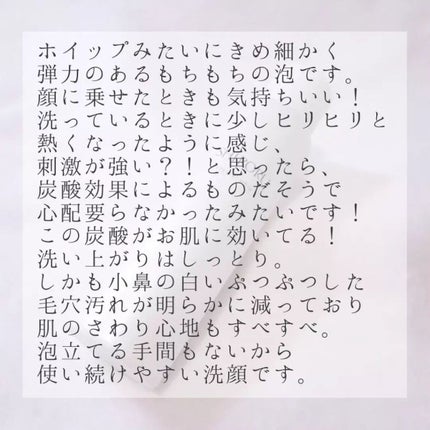 ホイップみたいにきめ細かく
弾力のあるもちもちの泡です。
顔に乗せたときも気持ちいい！
洗っているときに少しヒリヒリと
熱くなったように感じ、
刺激が強い？！と思ったら、
炭酸効果によるものだそうで
心配要らなかったみたいです！
この炭酸がお肌に効いてる！
洗い上がりはしっとり。
しかも小鼻の白いぷつぷつした
毛穴汚れが明らかに減っており
肌のさわり心地もすべすべ。
泡立てる手間もないから
使い続けやすい洗顔です。